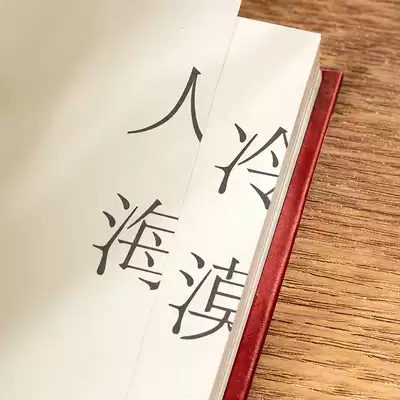 人海
冷漠